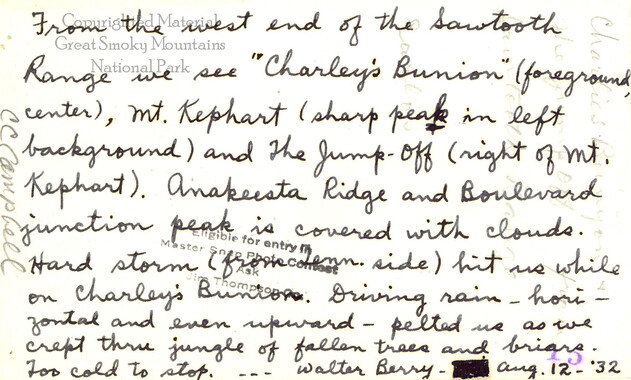 Copyrighted Material
Great Smoky Mountains
National Park
From the west end of the Sawtooth
Range we see "Charley's Bunion" (foreground,
center), Mt. Kephart (sharp peak in left
background) and The Jump-Off (right of Mt.
Kephart). Anakeesta Ridge and Boulevard
junction peak is covered with clouds.
Hard storm (from Tenn. side) hit us while
on Charley's Bunion. Driving rain - hori-
zontal and even upward - pelted us as we
crept thru jungle of fallen trees and briars.
Too cold to stop. --- Walter Berry - Aug. 12 - '32
CC Campbell
Eligible for entry in
Master Snap Photo Contest
Ask
Jim Thompson
13